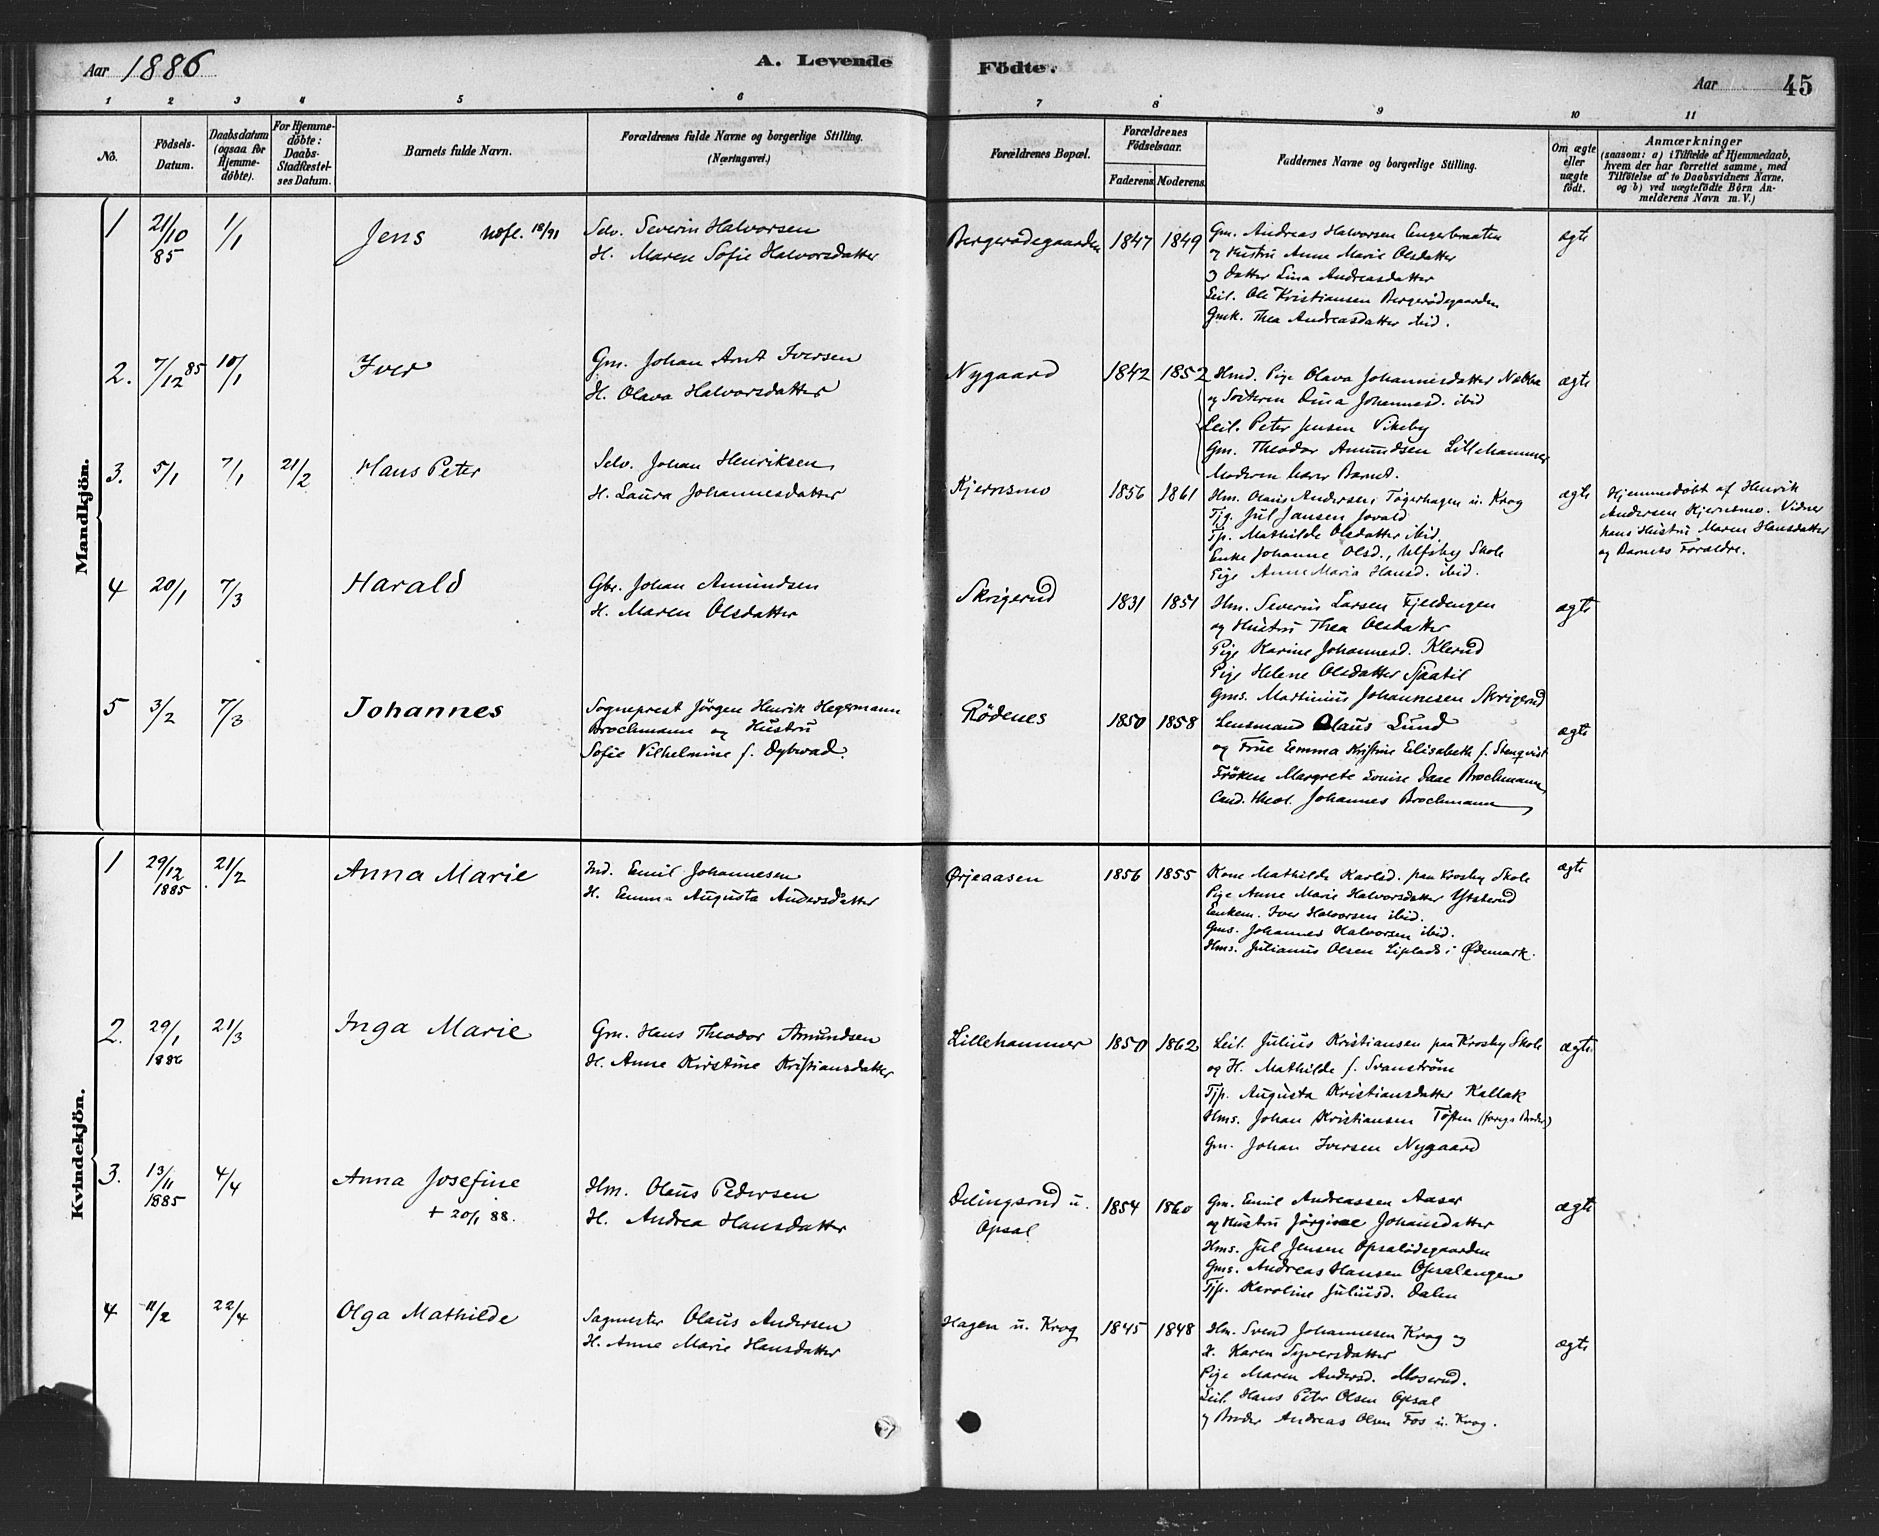 Aar 1886
A. Levende
Födte.
Aar
45
1 2 3 4 5 6 7 8 9 10 11
No.
Födsels-
Datum.
Daabsdatum
(ogsaa for
Hjemme-
döbte).
For Hjemme-
döbte:
Daabs-
Stadfæstel-
ses Datum.
Barnets fulde Navn.
Forældrenes fulde Navne og borgerlige Stilling.
(Næringsvei.)
Forældrenes Bopæl.
Forældrenes
Födselsaar.
Faderens.
Moderens.
Faddernes Navne og borgerlige Stilling.
Om ægte
eller
uægte
födt.
Anmærkninger
(saasom: a) i Tilfælde af Hjemmedaab,
hvem der har forrettet samme, med
Tilföielse af to Daabsvidners Navne.
og b) ved uægtefödte Börn An-
melderens Navn m. V.)
Mandkjön.
1
21/10
85
1/1
Jens
18/91
Selv. Severin Halvorsen
H. Maren Sofie Halvorsdatter
Bergerødegaarden
1847
1849
Gm. Andreas Halvorsen Engerbraaten
og Hustru Anne Marie Olsdatter
og Datter Lina Andreasdatter
Leil. Ole Kristiansen Bergerødegaarden
Gmk. Thea Andreasdatter ibid.
ægte
2.
7/12 85
10/1
Iver
Gm. Johan Arnt Iversen
H. Olava Halvorsdatter
Nygaard
1842
1852
Hmd. Pige Olava Johannesdatter Nabba
og Søsteren Dina Johannesd. ibid
Leil. Peter Jensen Vikeby
Gm. Theodor Amundsen Lillehammer
Moderen bærer Barnet.
ægte
3.
5/1
7/1
21/2
Hans Peter
Selv. Johan Henriksen
H. Laura Johannesdatter
Kjernsmo
1856
1861
Hm. Olaus Andersen, Tøgerhagen u. Krog
Tjg. Jul Jansen Jovald
Tp. Mathilde Olsdatter ibid.
Enke Johanne Olsd., Ulfsby Skole
Pige Anne Maria Hansd. ibid.
ægte
Hjemmedøbt af Henrik
Andersen Kjernesmo. Vidner
hans Hustru Maren Hansdatter
og Barnets Forældre.
4
20/1
7/3
Harald
Gbr. Johan Amundsen
H. Maren Olsdatter
Skrigerud
1831
1851
Hm. Severin Larsen Fjeldengen
og Hustru Thea Olsdatter
Pige Karine Johannesd. Klerud
Pige Helene Olsdatter Sjaatil
Gms. Martinius Johannesen Skrigerud
ægte
5
3/2
7/3
Johannes
Sogneprest Jørgen Henrik Hegermann
Brochmann og Hustru
Sofie Vilhelmine f. Dybwad.
Rødenes
1850
1858
Lensmand Olaus Lund
og Frue Emma Kristine Elisabeth f. Stenqvist
Frøken Margrete Louise Daae Brochmann,
Cand. theol. Johannes Brochmann
ægte
Kvindekjön.
1
29/12
1885
21/2
Anna Marie
Ind. Emil Johannesen
H. Emma Augusta Andersdatter
Ørjeaasen
1856
1855
Kone Mathilde Karlsd. paa Krosby Skole
Pige Anne Marie Halvorsdatter Ytsterud
Enkem. Iver Halvorsen ibid.
Gms. Johannes Halvorsen ibid.
Hms. Julianus Olsen Liplads i Ødemark.
ægte
2.
29/1
1886
21/3
Inga Marie
Gm. Hans Theodor Amundsen
H. Anne Kirstine Kristiansdatter
Lillehammer
1850
1862
Leil. Julius Kristiansen paa Krosby Skole
og H. Mathilde f. Svanstrøm
Tjp. Augusta Kristiansdatter Kallak
Hms. Johan Kristiansen Toften (foregs Broder)
Gm. Johan Iversen Nygaard
ægte
3.
13/11
1885
4/4
Anna Josefine
+ 20/1 88.
Hm. Olaus Pedersen
H. Andrea Hansdatter
Delingsrud u.
Opsal
1854
1860
Gm. Emil Andreassen Aaser
og Hustru Jørgine Johansdatter
Hms. Jul Jensen Opsalødegaarden
Gms. Andreas Hansen Opsalengen
Tjp. Karoline Juliusd. Dalen
ægte
4
11/2
22/4
Olga Mathilde
Sagmester Olaus Andersen
H. Anne Marie Hansdatter
Hagen u. Krog
1845
1848
Hm. Svend Johannesen Krog og
H. Karen Syversdatter
Pige Maren Andersd. Moserud.
Leil. Hans Peter Olsen Opsal
og Broder Andreas Olsen Fos u. Krog.
ægte